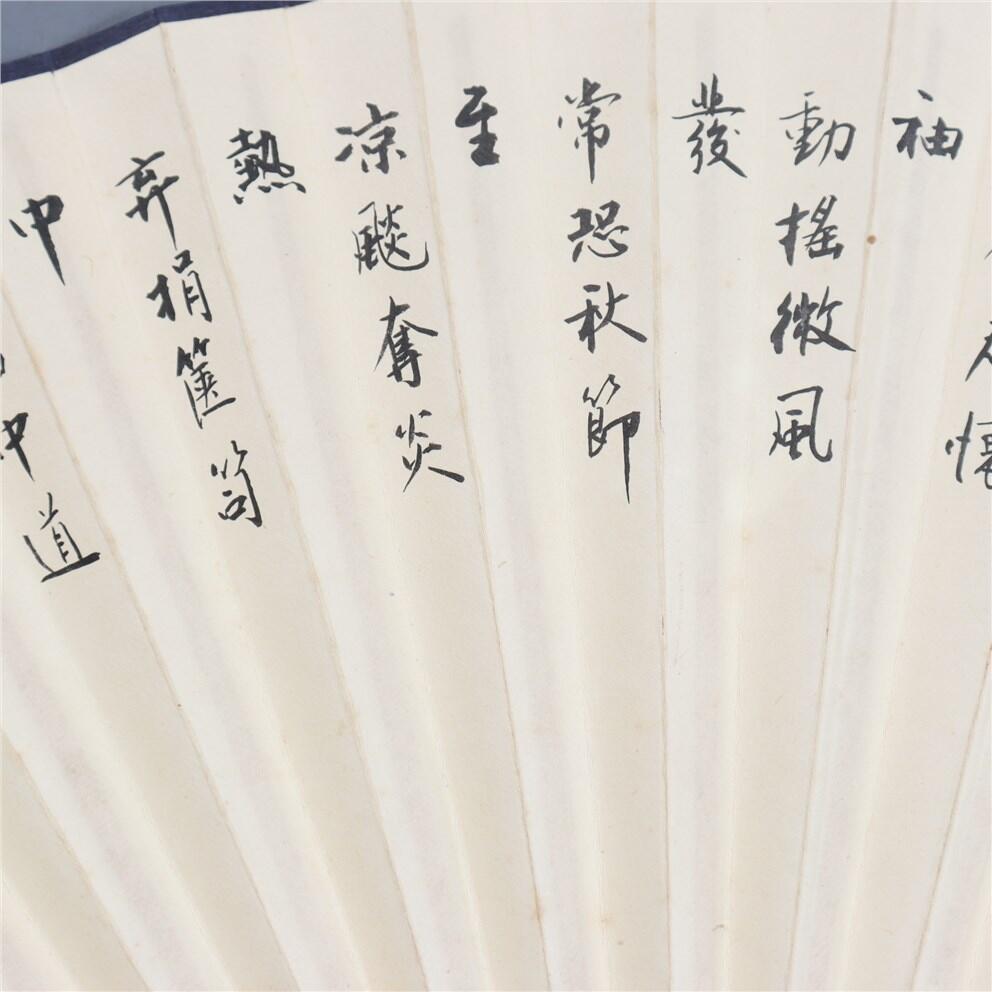 君懷
袖
動搖微風
發
常恐秋節
至
凉颷奪炎
熱
弃捐篋笥
中
中道